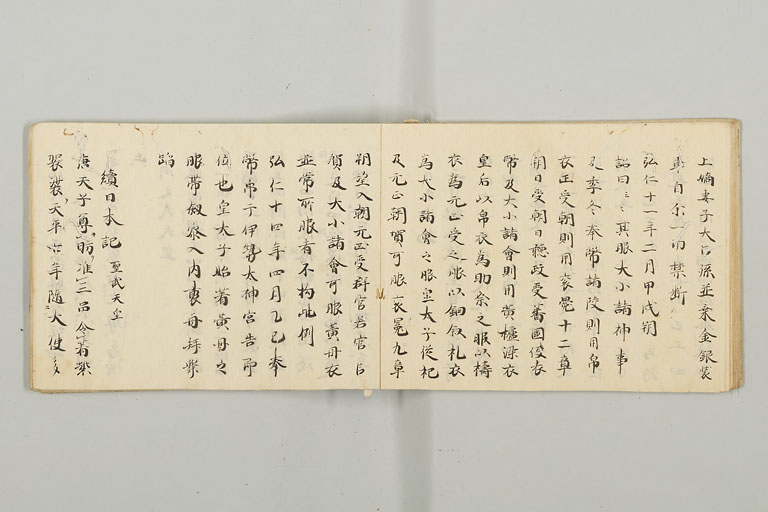 上嫡妻子大臣孫並聽金銀装
車自余一切禁断
弘仁十一年二月甲戌朔
詔曰云々其服大小諸神事
及季冬奉幣諸陵則用帛
衣正受朝則用袞冕十二章
朔日受朝日聴政受蕃國使表
幣及大小諸會則用黄櫨染衣
皇后以帛衣為助祭之服以𧞫
衣為元正受之服以鈿釵礼衣
為大小諸會之服皇太子従祀
及元正朝賀可服袞冕九章
朔望入朝元正受群官若官臣
賀及大小諸會可服黄丹衣
並常所服者不拘此例
弘仁十四年四月乙巳奉
幣帛于伊勢太神宮告即
位也皇太子始着黄丹之
服帯劔参入内裏再拝舞
蹈
續日本記 聖武天皇
唐天子尊昉准三品令着紫
袈裟天平六年随大使多